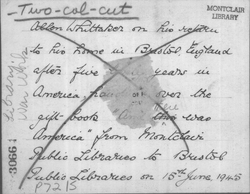 Two-col-cut
MONTCLAIR
LIBRARY
Allan Whittaker on his return
to his home in Bristol, England
after five years in
America hand over the
gift book was
America" from Montclair
Public Libraries to Bristol
Public Libraries on 15th June, 1945
Library:
War Work
30661
P72 B